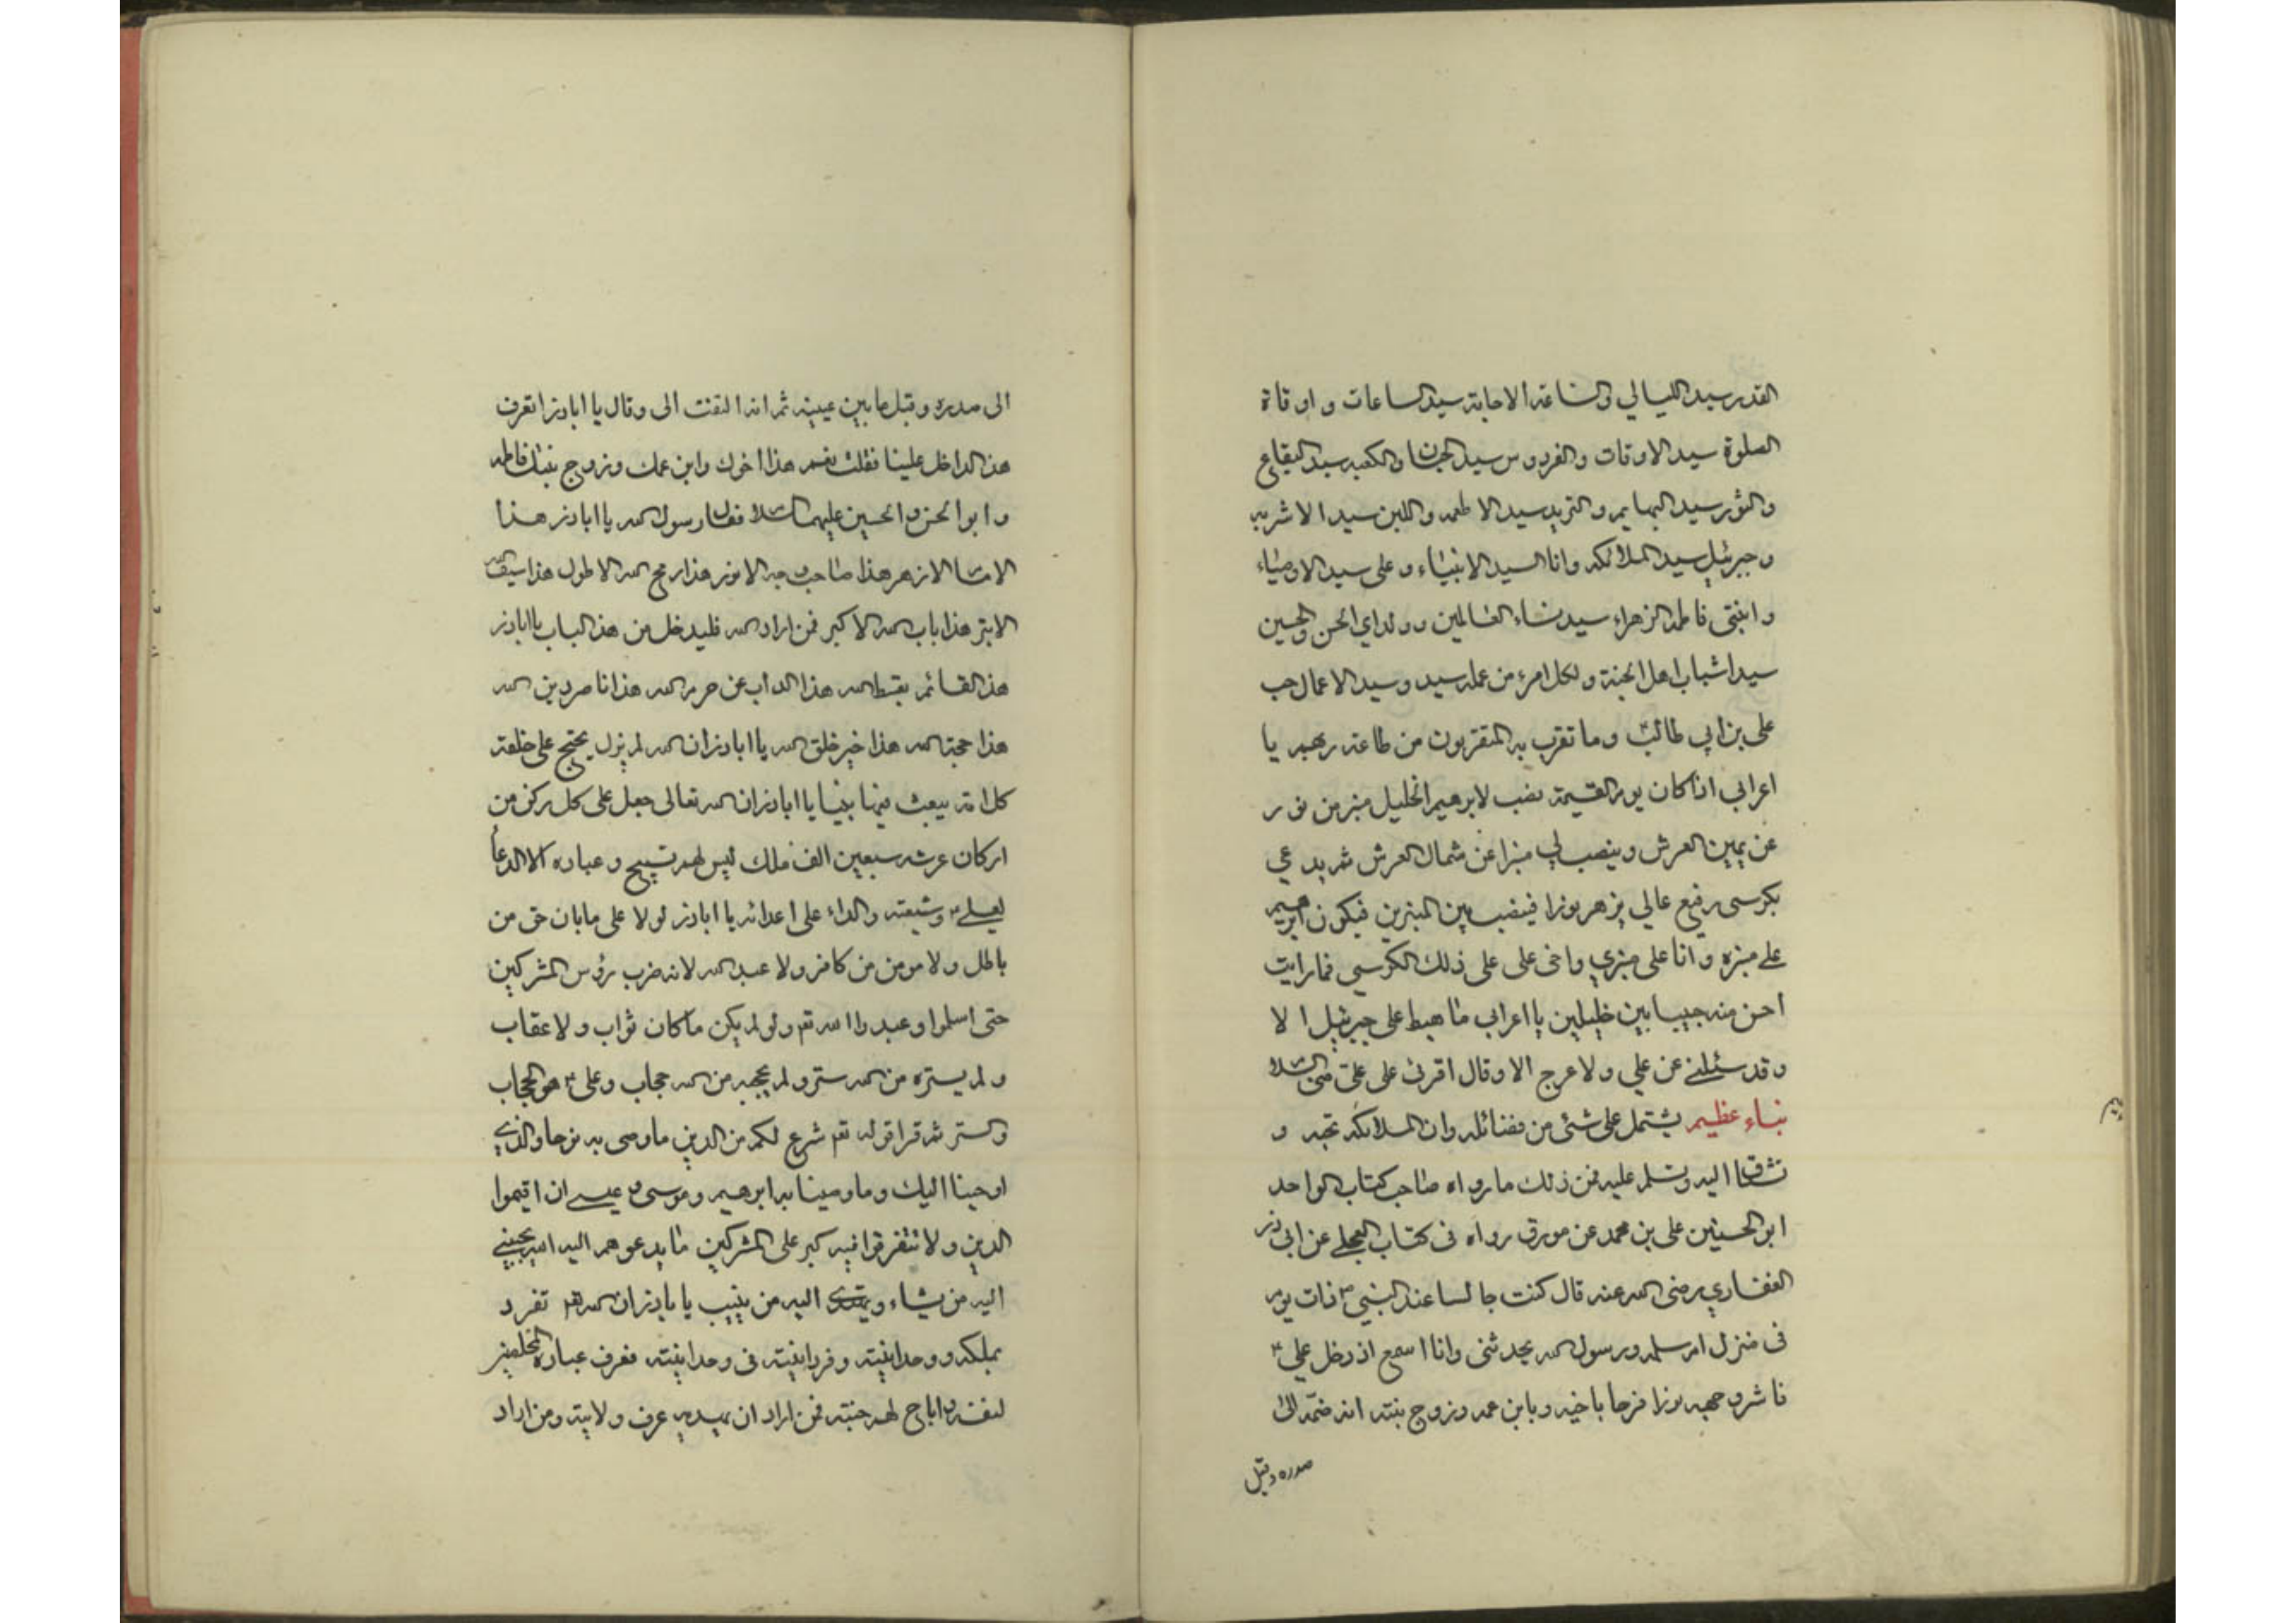 القدر سيد الليالي والساعة الاجابة سيد الساعات و اوقاة
الصلوة سيد الاوقات والفردوس سيد الجنان والكعبه سيد البقاع
والثور سيد البهايم والثريد سيد الاطعمه واللبن سيد الاشربه
وجبرئيل سيد الملائكه وانا السيد الانبياء وعلى سيد الاوصياء
وابنتى فاطمه الزهراء سيد نساء العالمين وولداي الحسن والحسين
سيدا شباب اهل الجنة ولكل امرء من عمله سيد وسيد الاعمال حب
على بن ابي طالب وما تقرب به المتقربون من طاعة ربهم يا
اعرابي اذا كان يوم القيمة نصب لابرهيم الخليل منبر من نور
عن يمين العرش وينصب لي منبرا عن شمال العرش ثم يدعي
بكرسى رفيع عالي يزهر نورا فينصب بين المنبرين فيكون ابرهيم
على منبره وانا على منبري واخى على على ذلك الكرسي فما رايت
احسن منه حبيبا بين خليلين يا اعرابي ما هبط على جبرئيل ا لا
وقد سئلنى عن علي ولا عرج الا وقال اقرئ على على منى السلام
نباء عظيم يشتمل على شئ من فضائله وان الملائكه تحبه و
تشتاق اليه وتسلم عليه فمن ذلك ما رواه صاحب كتاب الواحد
ابو الحسين على بن محمد عن مورق رواه فى كتاب العجلى عن ابى ذر
الغفاري رضى الله عنه قال كنت جالسا عند النبي ذات يوم
فى منزل ام سلمه ورسول الله يحدثنى وانا اسمع اذ دخل علي
فاشرق وجهه نورا فرحا باخيه وبابن عمه وزوج بنته انه ضمه الى
صدره وقبل
الى صدره وقبل ما بين عينيه ثم انه التفت الى وقال يا اباذر اتعرف
هذا الداخل علينا فقلت نعم هذا اخوك وابن عمك وزوج بنتك فاطمه
وابو الحسن والحسين عليهما السلام فقال رسول الله يا اباذر هذا
الامام الازهر هذا صاحب وجه الانور هذا رمح الله الاطول هذا سيف الله
الابتر هذا باب الله الاكبر فمن اراد الله فليدخل من هذا الباب يا اباذر
هذا القائم بقسط الله هذا الذاب عن حرم الله هذا ناصر دين الله
هذا حجة الله هذا خير خلق الله يا اباذر ان الله لم يزل يحتج على خلقه
كل امة يبعث فيها نبيا يا اباذر ان الله تعالى جعل على كل ركن من
اركان عرشه سبعين الف ملك ليس لهم تسبيح وعباده الا الدعا
لعلى وشيعته والداء على اعدائه يا اباذر لولا على مابان حق من
باطل ولا مومن من كافر ولا عبد الله لانه ضرب رؤس المشركين
حتى اسلموا وعبدوا الله تعم ولو لم يكن ماكان ثواب ولا عقاب
ولم يستره من الله ستر ولم يحجبه من الله حجاب وعلى هو الحجاب
والستر ثم قرا قوله تعم شرع لكم من الدين ما وصى به نوحا والذي
اوحينا اليك وما وصينا به ابرهيم وموسى وعيسى ان اقيموا
الدين ولا تتفرقوا فيه كبر على المشركين ما يدعوهم اليه الله يجتبى
اليه من يشاء ويهتدى اليه من ينيب يا باذر ان الله تعم تفرد
بملكه ووحدانيته وفردانيته فى وحدانيته فعرف عباده المخلصين
لنفسه واباح لهم جنته فمن اراد ان يهديه عرف ولايته ومن اراد